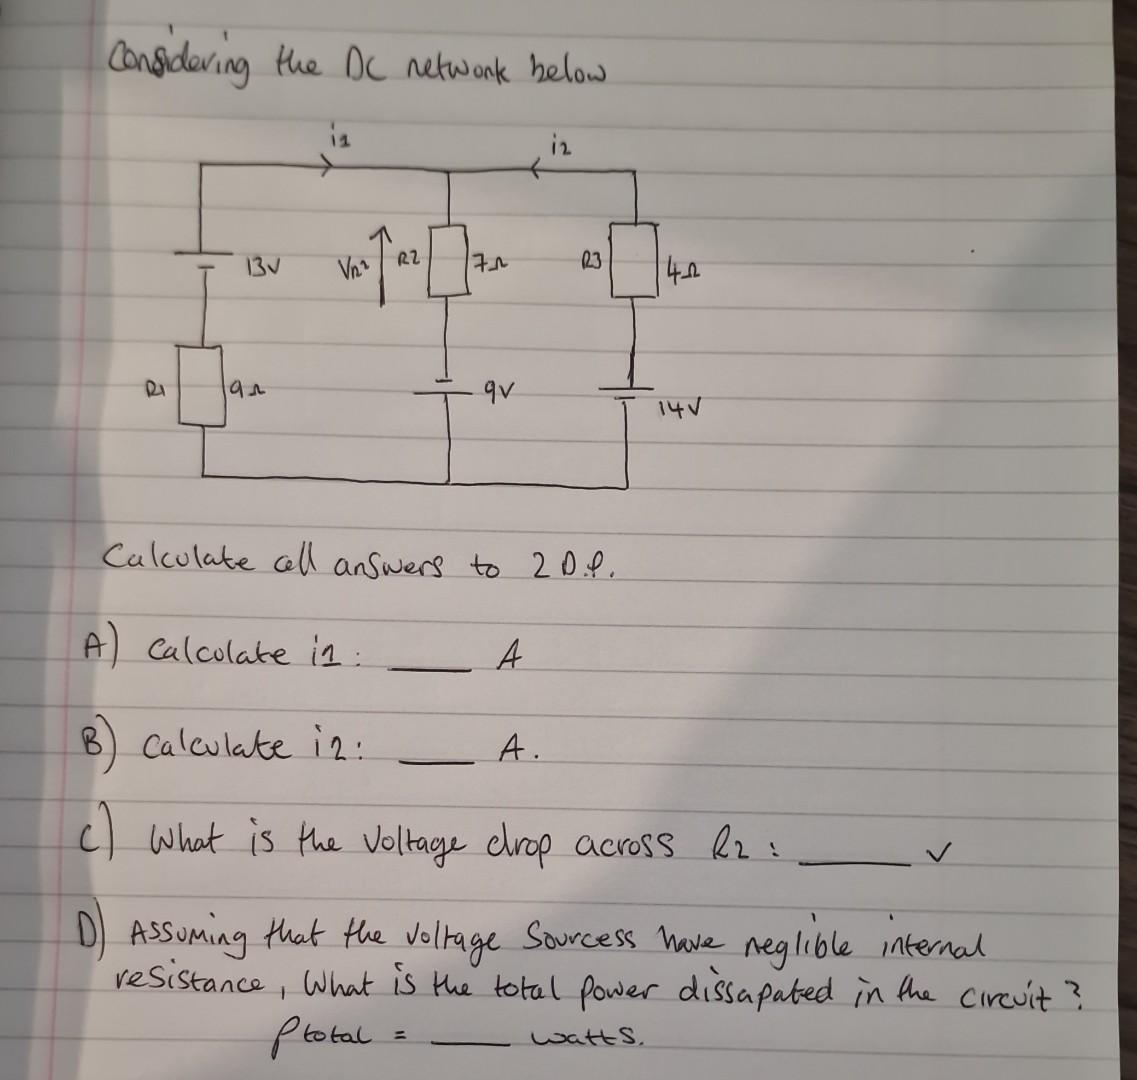 Considering the DC network below
i1
i2
13v
VR2
R2
7Ω
R3
4Ω
R1
9Ω
9v
14v
Calculate all answers to 2 D.P.
A) Calculate i1: ____ A
B) Calculate i2: ____ A.
C) What is the voltage drop across R2: ____ v
D) Assuming that the voltage Sourcess have neglible internal
resistance, What is the total power dissapated in the circuit?
Ptotal = ____ watts.